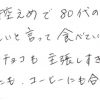 控えめで 80代の
いと言って 食べてい
チョコも 主張しすぎ
も、コーヒーにも合